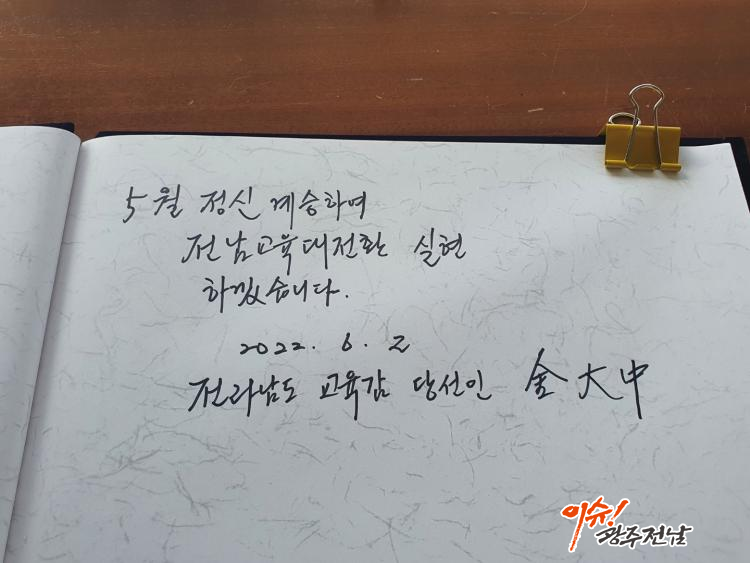 5월 정신 계승하며
전남교육대전환 실현
하겠습니다.
2022. 6. 2
전라남도 교육감 당선인 金大中
이슈!
광주전남